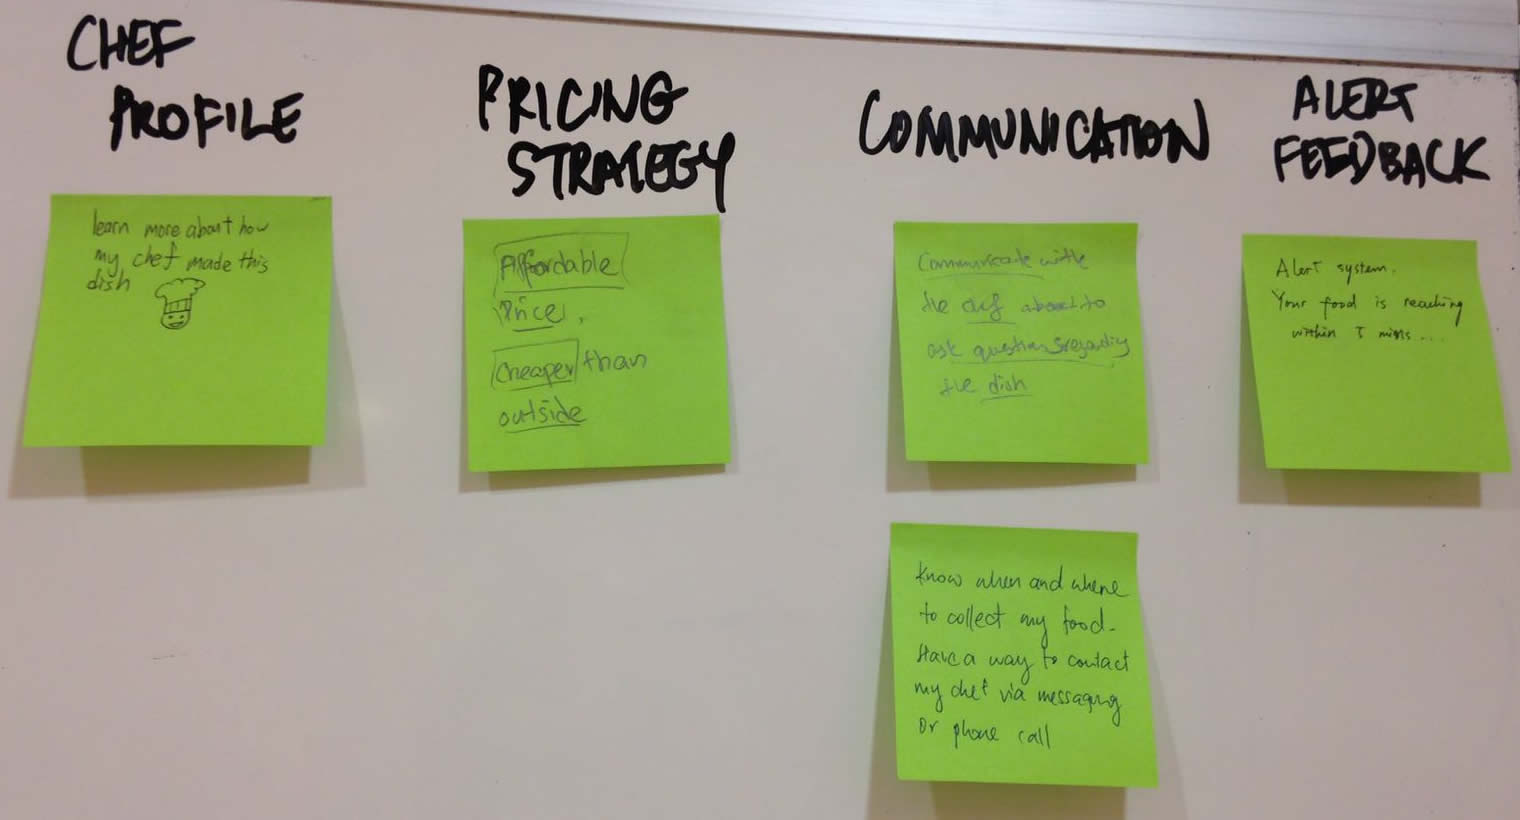 CHEF
PROFILE
learn more about how
my chef made this
dish
PRICING
STRATEGY
Affordable
Price.
Cheaper than
outside
COMMUNICATION
Communicate with
the chef about to
ask questions regarding
the dish
Know when and where
to collect my food.
Have a way to contact
my chef via messaging
or phone call
ALERT
FEEDBACK
Alert system.
Your food is reaching
within 5 mins...